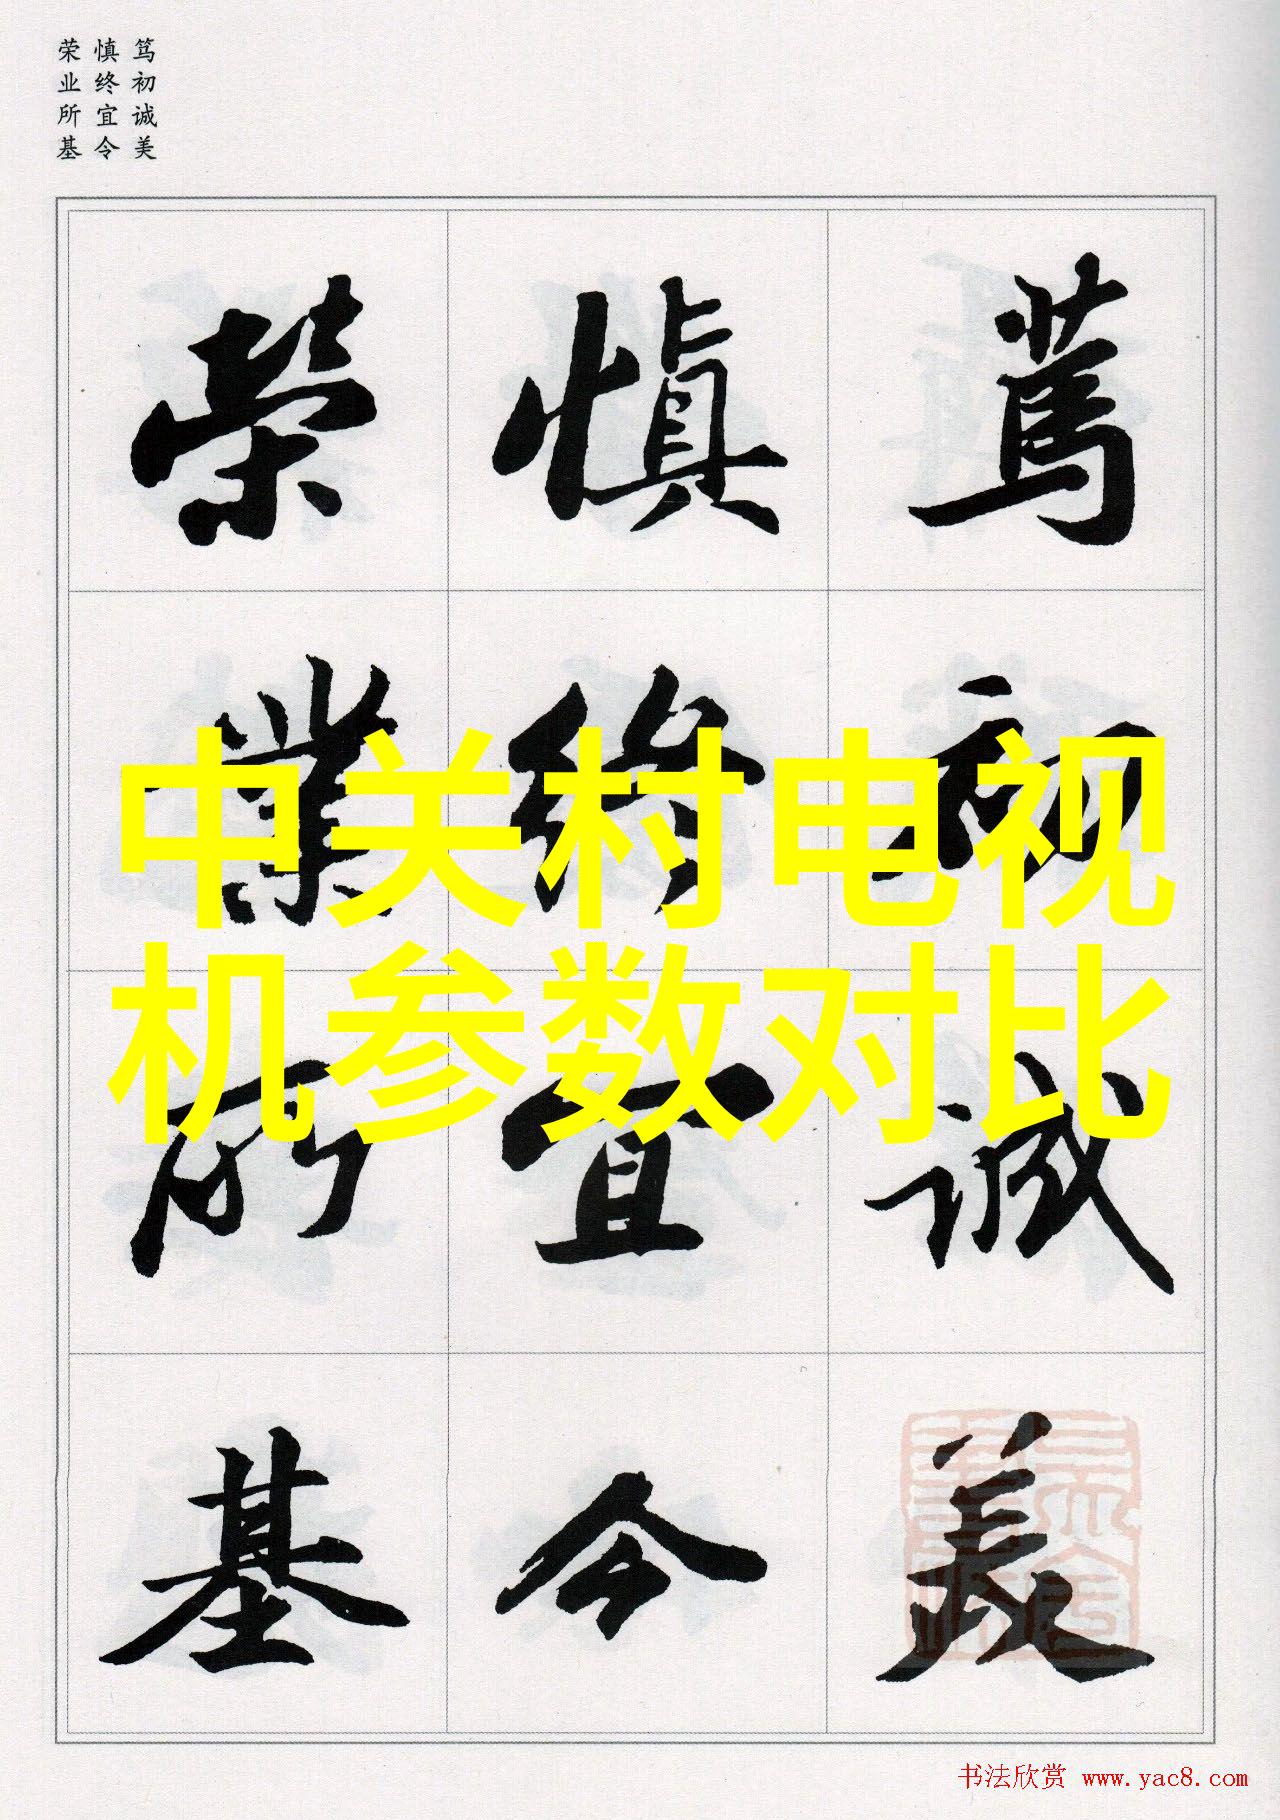 笃初诚美
慎终宜令
荣业所基
篤初誠美
慎終宜令
榮業所基
中关村电视
机参数对比
书法欣赏 www.yac8.com